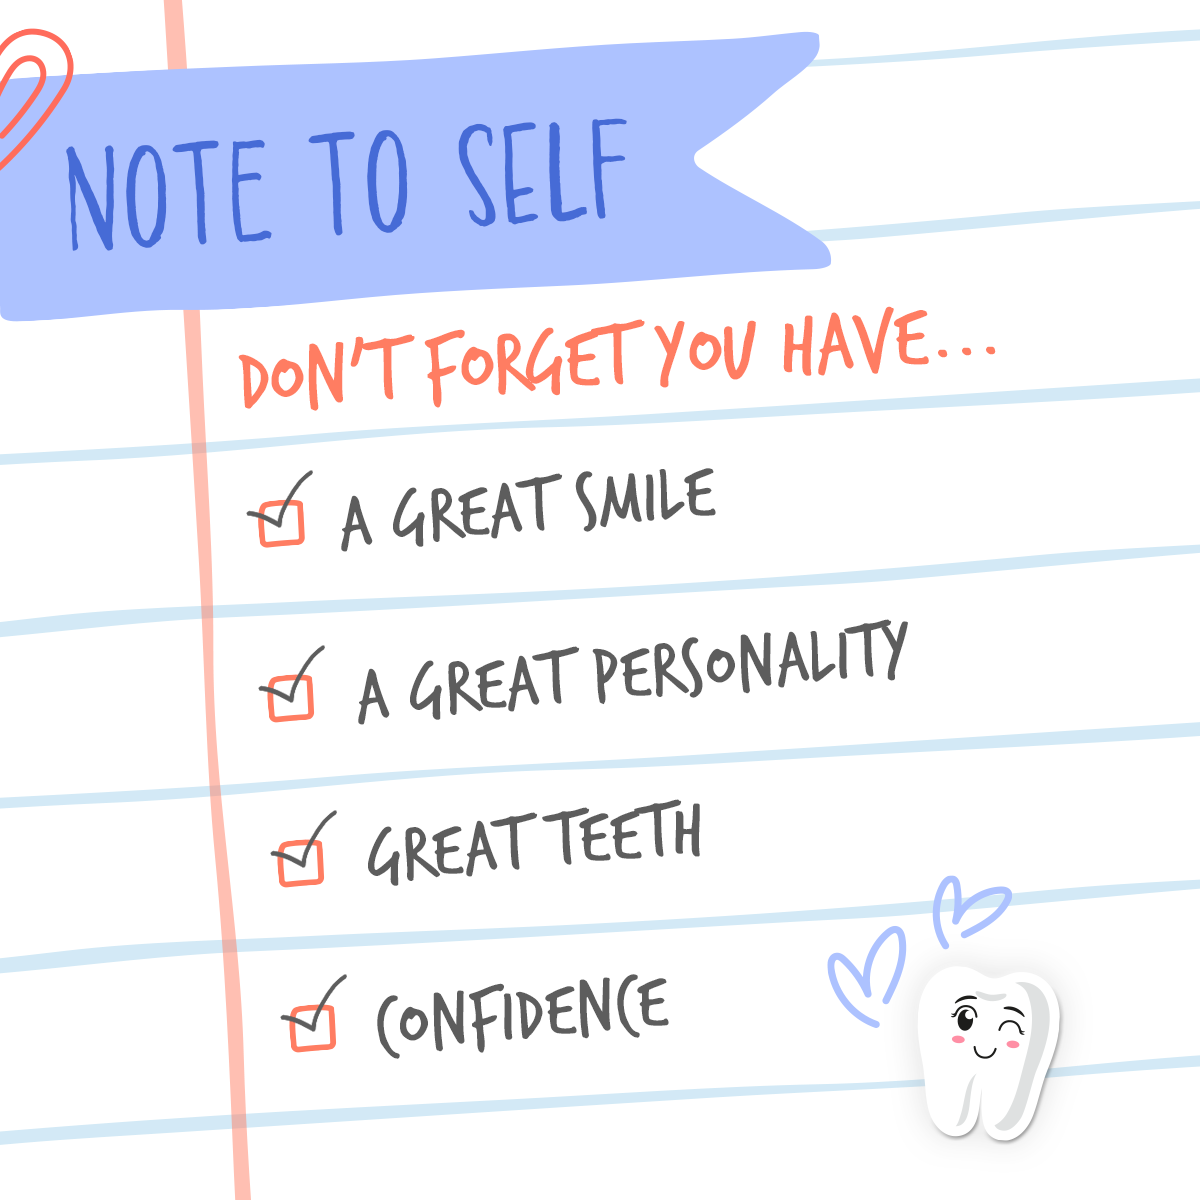 NOTE TO SELF
DON'T FORGET YOU HAVE...
A GREAT SMILE
A GREAT PERSONALITY
GREAT TEETH
CONFIDENCE